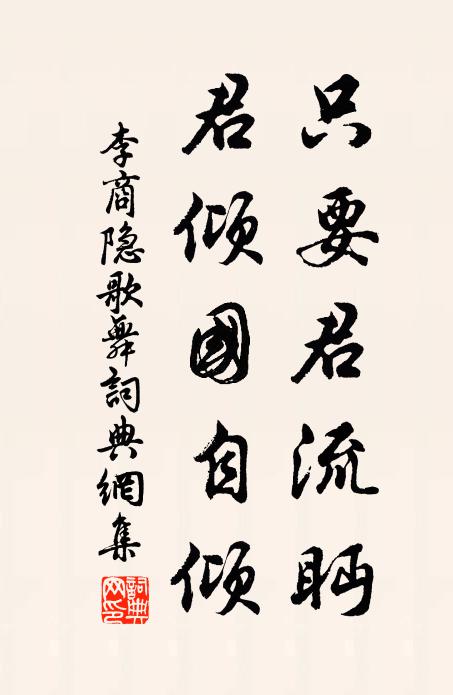 只要君流眄
君倾國自倾
李商隐歌舞詞典網集
詞典网印